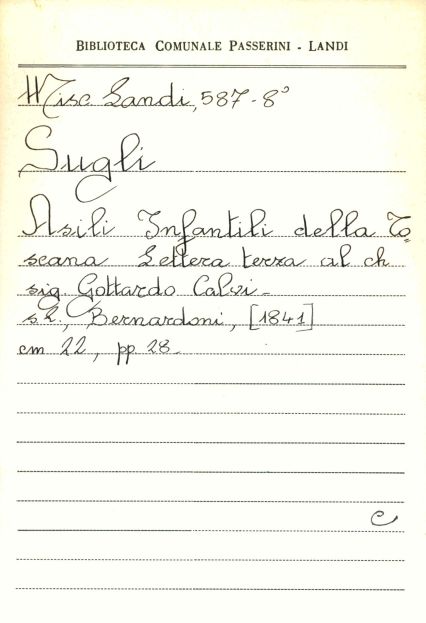 BIBLIOTECA COMUNALE PASSERINI - LANDI
Misc. Landi, 587-8°
Sugli
Asili Infantili della To=
scana Lettera terza al ch
sig. Gottardo Calvi -
s.l., Bernardoni, [1841]
cm 22, pp 28.
C